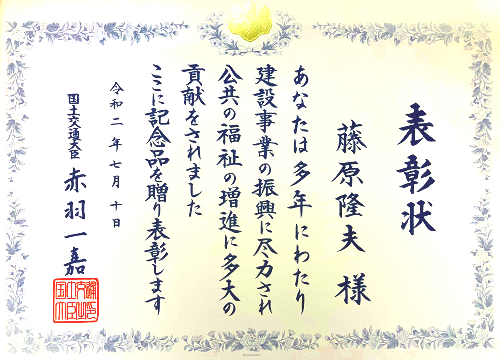 表彰状
藤原隆夫 様
あなたは多年にわたり
建設事業の振興に尽力され
公共の福祉の増進に多大の
貢献をされました
ここに記念品を贈り表彰します
令和二年七月十日
国土交通大臣 赤羽一嘉